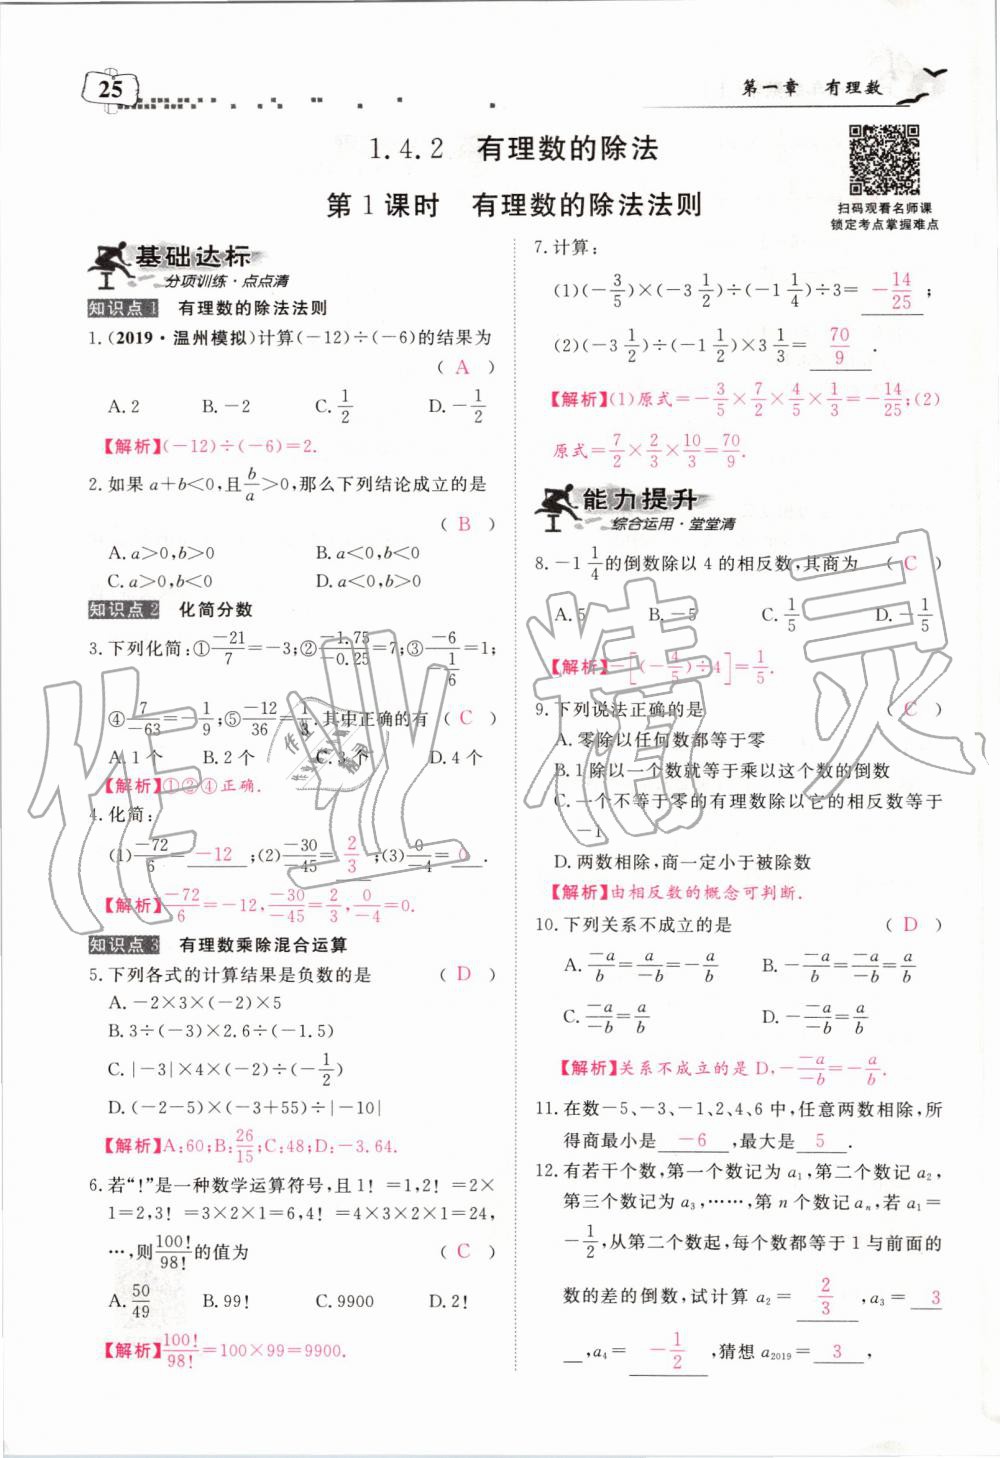 25
第一章 有理数
1.4.2 有理数的除法
第1课时 有理数的除法法则
扫码观看名师课
锁定考点掌握难点
基础达标
分项训练·点点清
知识点1 有理数的除法法则
1.(2019·温州模拟)计算(-12)÷(-6)的结果为
( A )
A.2 B.-2 C.1/2 D.-1/2
【解析】(-12)÷(-6)=2.
2.如果a+b<0,且b/a>0,那么下列结论成立的是
( B )
A.a>0,b>0 B.a<0,b<0
C.a>0,b<0 D.a<0,b>0
知识点2 化简分数
3.下列化简:①-21/7=-3;②-1.75/-0.25=7;③-6/-1/6=1;
④7/-63=-1/9;⑤-12/36=1/3.其中正确的有 ( C )
A.1个 B.2个 C.3个 D.4个
【解析】①②④正确.
4.化简:
(1)-72/6=-12;(2)-30/-45=2/3;(3)0/-4=0.
【解析】-72/6=-12,-30/-45=2/3,0/-4=0.
知识点3 有理数乘除混合运算
5.下列各式的计算结果是负数的是 ( D )
A.-2×3×(-2)×5
B.3÷(-3)×2.6÷(-1.5)
C.|-3|×4×(-2)÷(-1/2)
D.(-2-5)×(-3+55)÷|-10|
【解析】A:60;B:26/15;C:48;D:-3.64.
6.若“!”是一种数学运算符号,且1!=1,2!=2×
1=2,3!=3×2×1=6,4!=4×3×2×1=24,
…,则100!/98!的值为 ( C )
A.50/49 B.99! C.9900 D.2!
【解析】100!/98!=100×99=9900.
7.计算:
(1)(-3/5)×(-3 1/2)÷(-1 1/4)÷3=-14/25;
(2)(-3 1/2)÷(-1 1/2)×3 1/3=70/9.
【解析】(1)原式=-3/5×7/2×4/5×1/3=-14/25;(2)
原式=7/2×2/3×10/3=70/9.
能力提升
综合运用·堂堂清
8.-1 1/4的倒数除以4的相反数,其商为 ( C )
A.5 B.-5 C.1/5 D.-1/5
【解析】-[(-4/5)÷4]=1/5.
9.下列说法正确的是 ( C )
A.零除以任何数都等于零
B.1除以一个数就等于乘以这个数的倒数
C.一个不等于零的有理数除以它的相反数等于
-1
D.两数相除,商一定小于被除数
【解析】由相反数的概念可判断.
10.下列关系不成立的是 ( D )
A.-a/b=a/-b=-a/b B.--a/b=-a/-b=a/b
C.-a/-b=a/b D.--a/-b=a/b
【解析】关系不成立的是D,--a/-b=-a/b.
11.在数-5、-3、-1、2、4、6中,任意两数相除,所
得商最小是 -6 ,最大是 5 .
12.有若干个数,第一个数记为a₁,第二个数记a₂,
第三个数记为a₃,……,第n个数记aₙ,若a₁=
-1/2,从第二个数起,每个数都等于1与前面的
数的差的倒数,试计算a₂=2/3,a₃=3
,a₄=-1/2,猜想a₂₀₁₉=3,
作业精灵